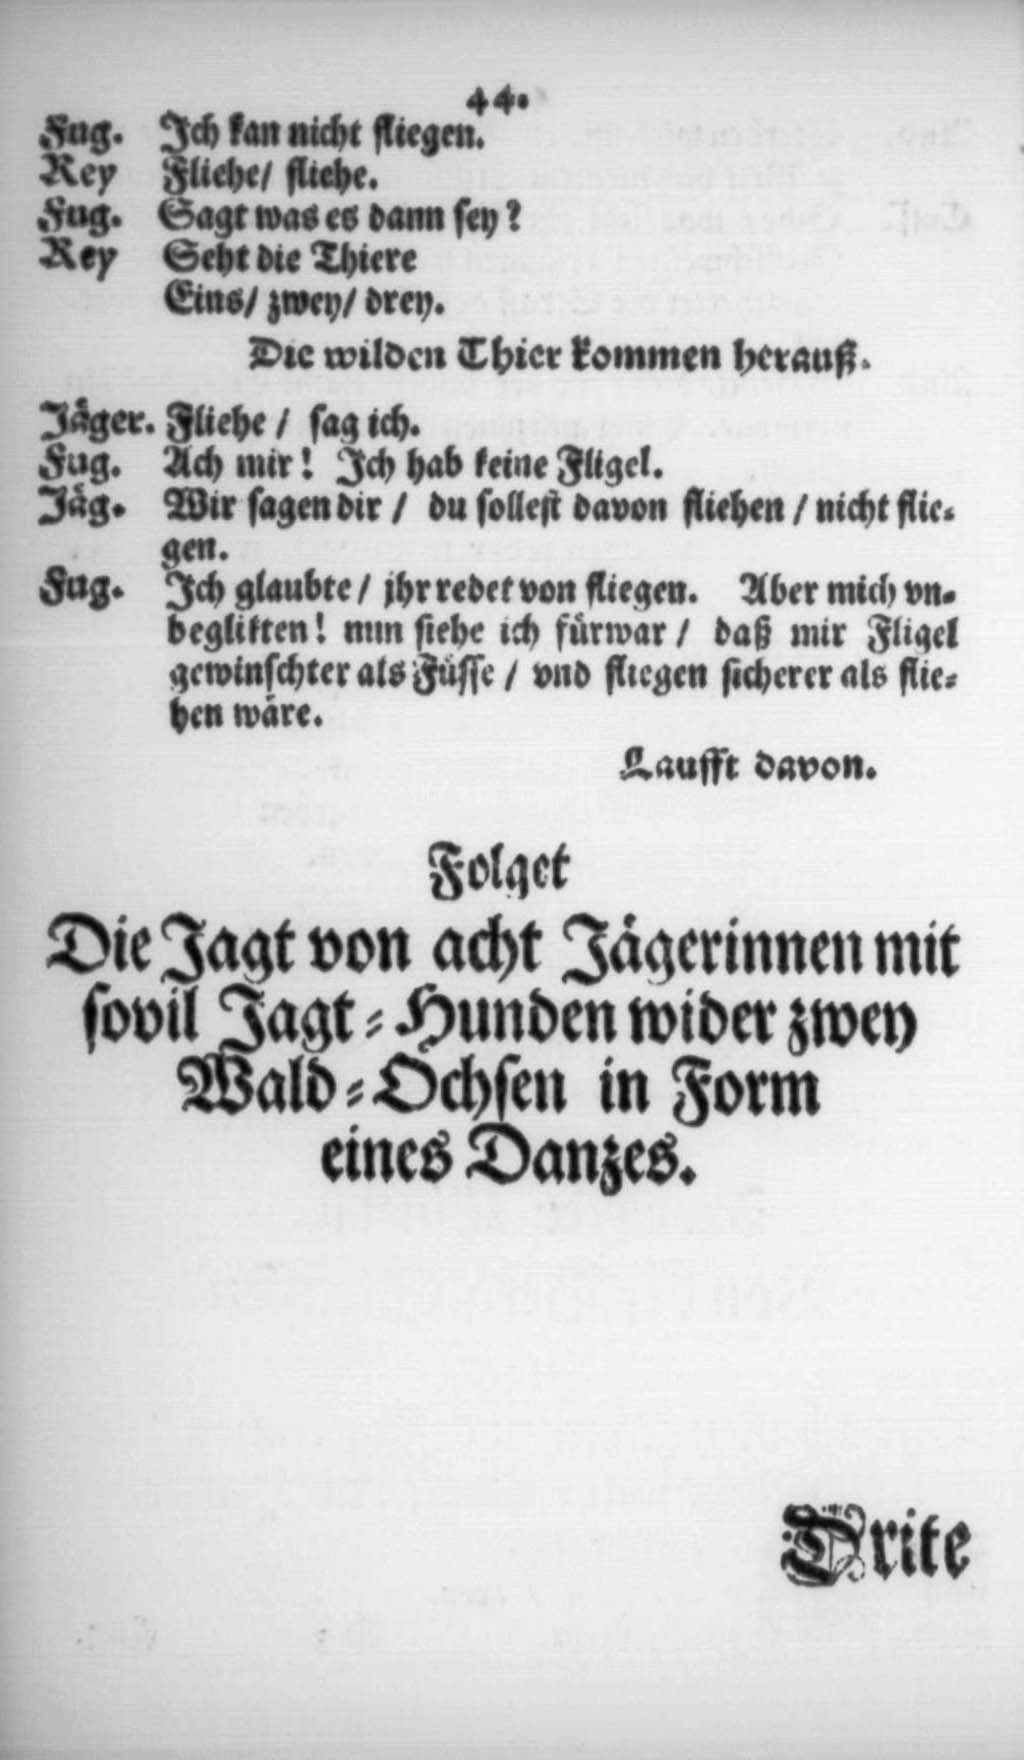 44.
Fug. Ich kan nicht fliegen.
Rey Fliehe/ fliehe.
Fug. Sagt was es dann sey?
Rey Seht die Thiere
Eins/ zwey/ drey.
Die wilden Thier kommen herauß.
Jäger. Fliehe / sag ich.
Fug. Ach mir! Ich hab keine Fligel.
Jäg. Wir sagen dir / du sollest davon fliehen / nicht flie-
gen.
Fug. Ich glaubte / jhr redet von fliegen. Aber mich vn-
beglikten! nun siehe ich fürwar / daß mir Fligel
gewinschter als Füsse / vnd fliegen sicherer als flie-
hen wäre.
Laufft davon.
Folget
Die Jagt von acht Jägerinnen mit
sovil Jagt-Hunden wider zwey
Wald-Ochsen in Form
eines Danzes.
Drite